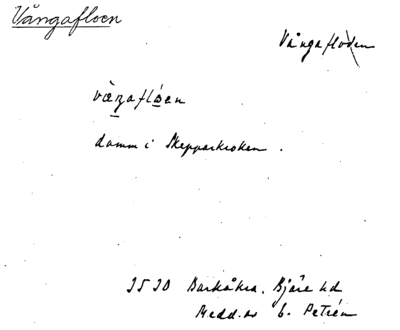 Vångafloen
Vångafloden
væŋaflóen
damm i Skepparkroken.
3530 Barkåkra. Bjäre hd
Medd. av G. Petrén